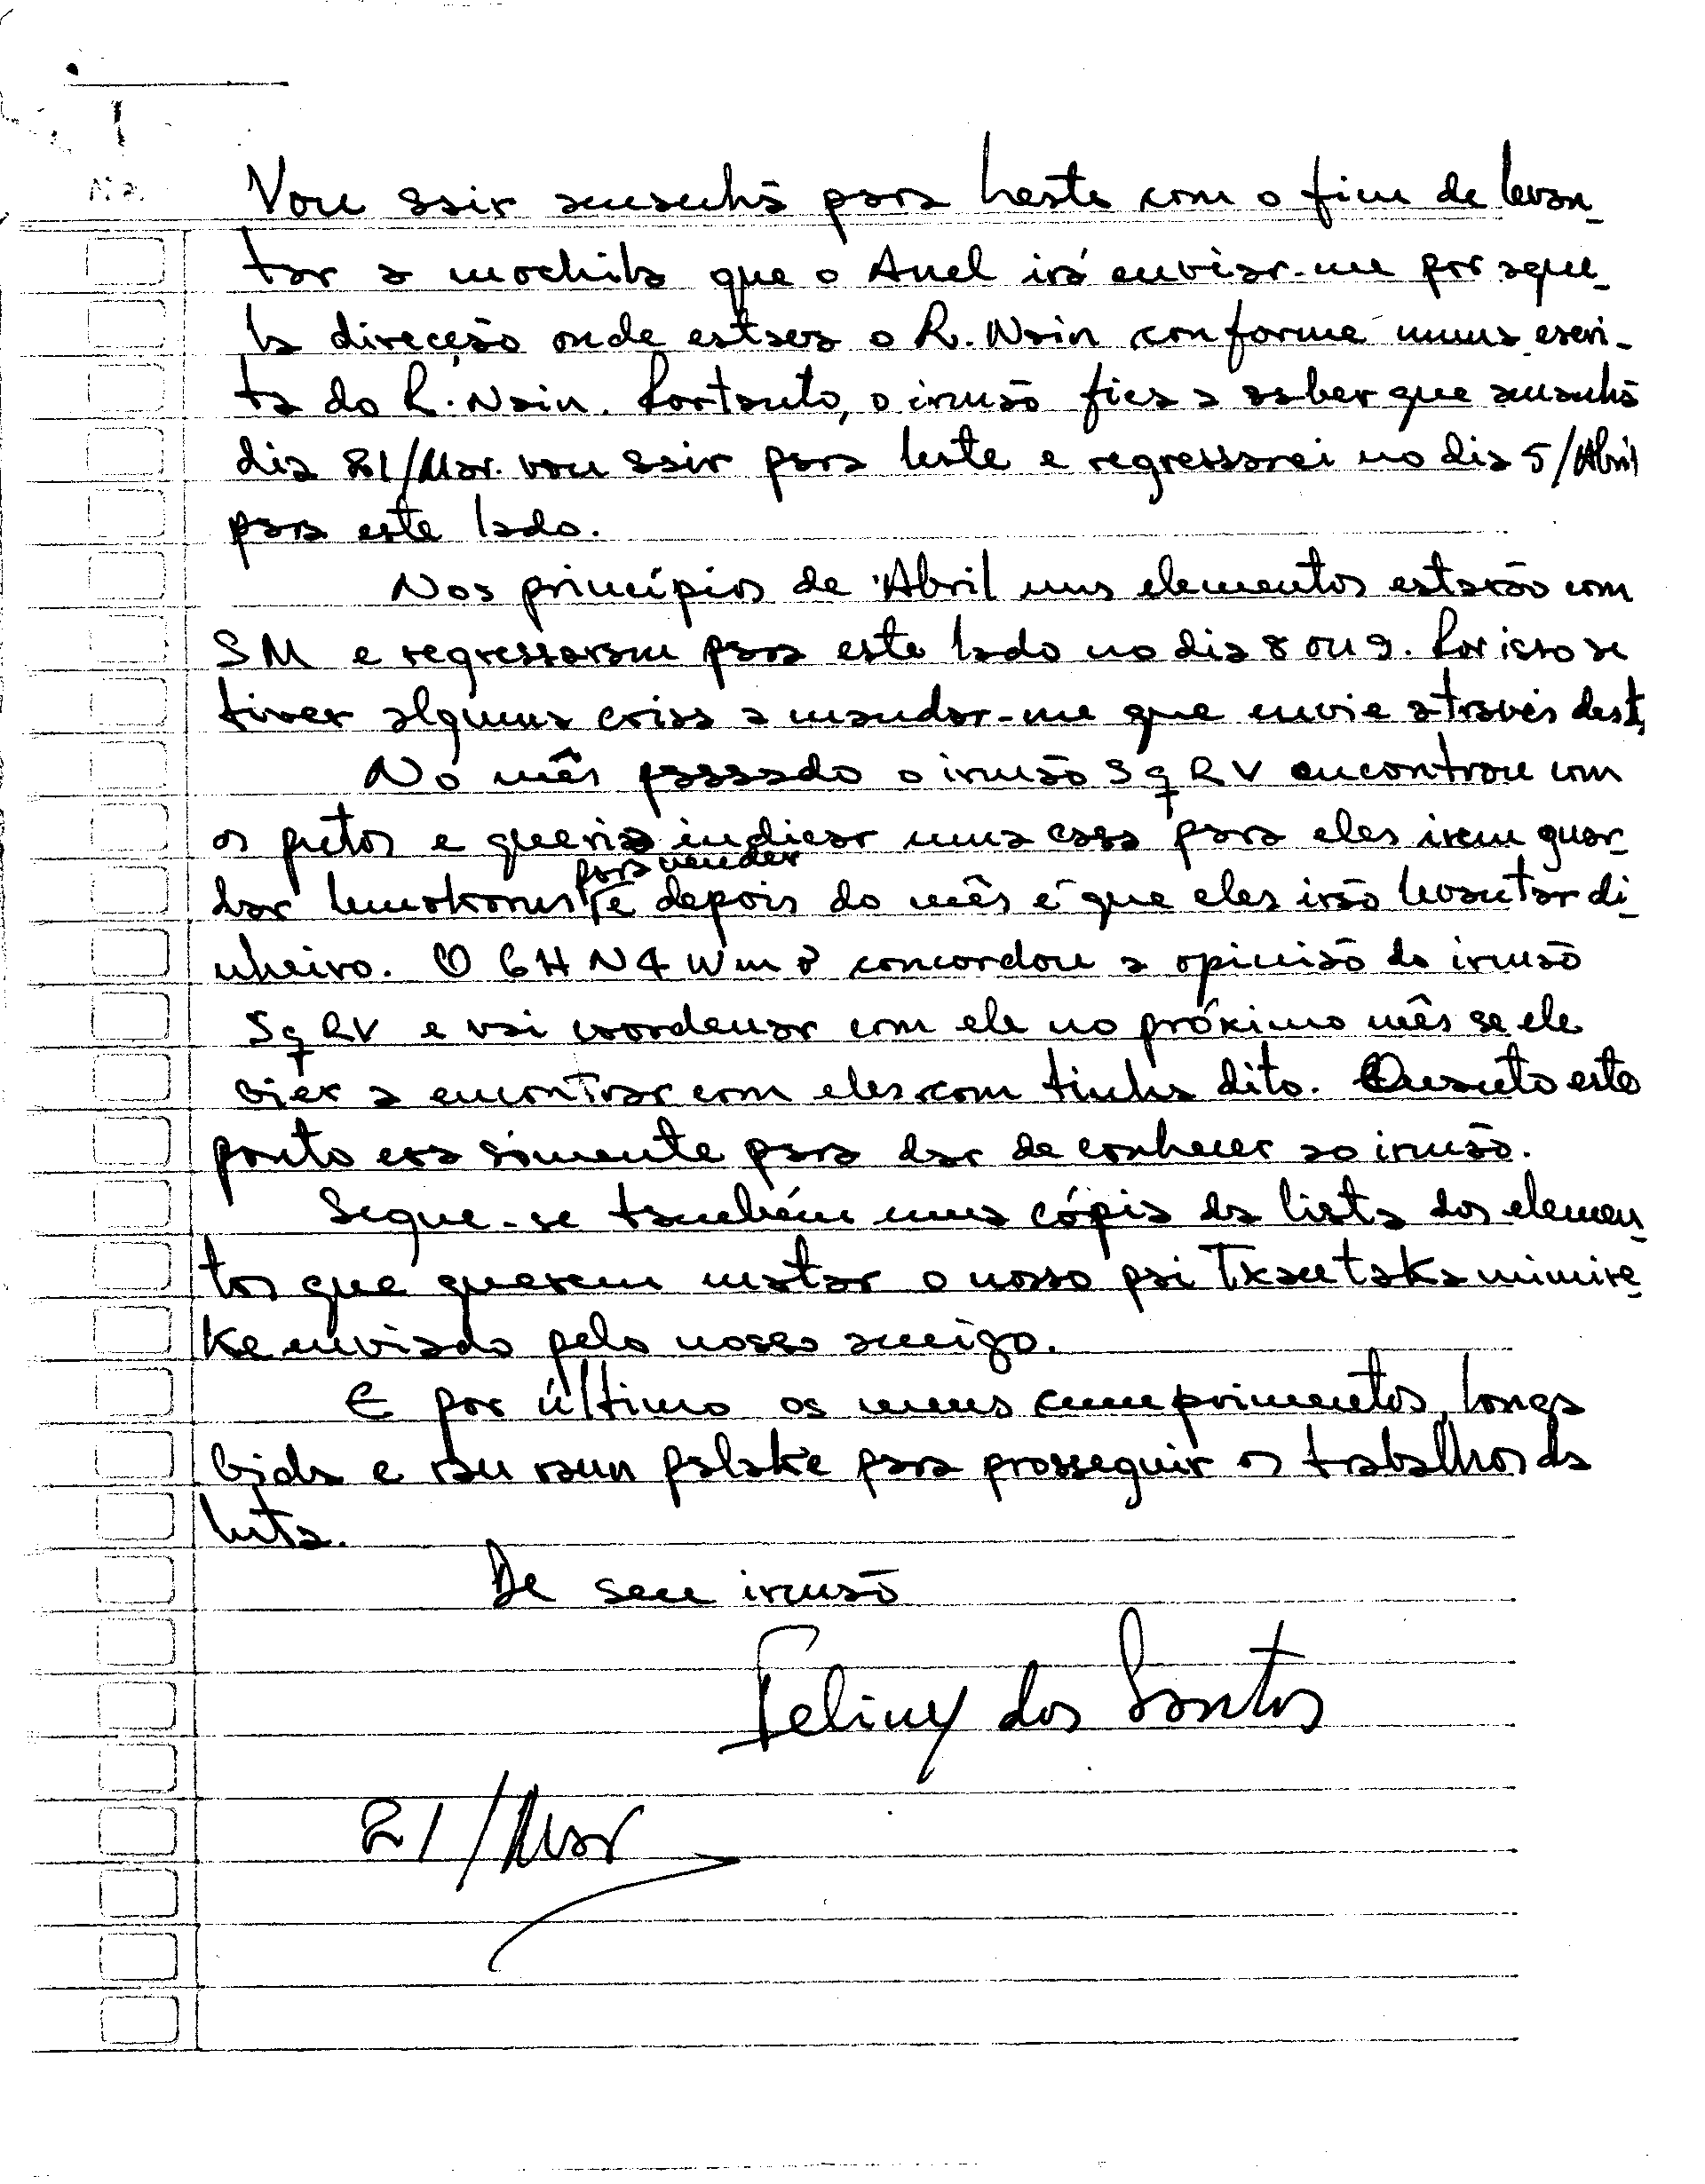 Vou sair amanhã para Leste com o fim de levan-
tar a mochila que o Anel irá enviar-me por aque-
la direcção onde estaera o R. Nain conforme numa escri-
ta do R. Nain. Portanto, o irmão fica a saber que amanhã
dia 21/Mar. vou sair para leste e regressarei no dia 5/Abril
para este lado.
Nos princípios de Abril uns elementos estarão com
SM e regressaram para este lado no dia 8 ou 9. Por isso se
tiver alguma coisa a mandar-me que envie através dest.
No mês passado o irmão SqRV encontrou com
os pretos e queria indicar uma casa para eles irem guar-
para vender
dar e depois do mês é que eles irão levantar di-
nheiro. O 6HN4Wm8 concordou a opinião do irmão
SqRV e vai coordenar com ele no próximo mês se ele
vier a encontrar com eles com tinha dito. Quanto este
ponto era sómente para dar de conhecer ao irmão.
Segue-se também uma cópia da lista dos elemen-
tos que querem matar o nosso pai Txantakamimire-
ke enviado pelo nosso amigo.
E por último os meus cumprimentos, longa
bida e rau raun palake para prosseguir os trabalhos da
luta.
De seu irmão
Feliny dos Santos
21/Mar